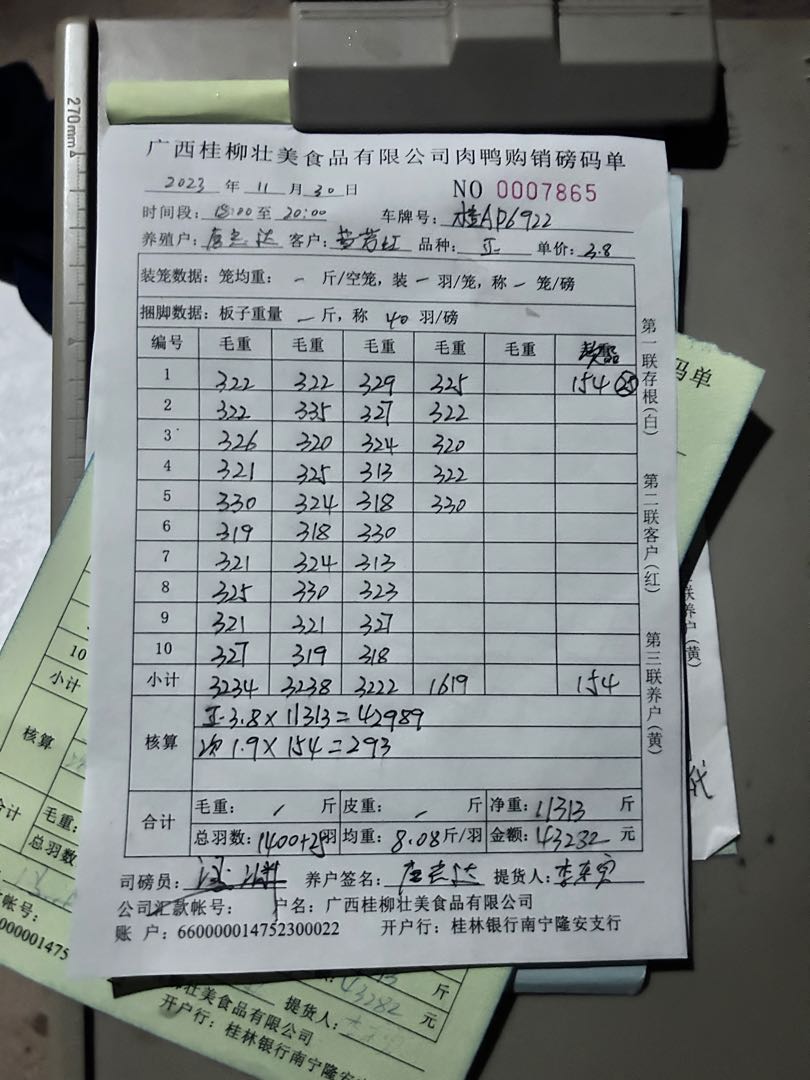 270mm
广西桂柳壮美食品有限公司肉鸭购销磅码单
2023 年 11 月 30 日 NO 0007865
时间段: 18:00 至 20:00 车牌号: 桂AD6922
养殖户: 唐忠达 客户: 品种: 正 单价: 3.8
装笼数据: 笼均重: - 斤/空笼, 装 - 羽/笼, 称 - 笼/磅
捆脚数据: 板子重量 - 斤, 称 40 羽/磅
编号 毛重 毛重 毛重 毛重 毛重
1 322 322 329 325 154 25
2 322 335 327 322
3 326 320 324 320
4 321 325 313 322
5 330 324 318 330
6 319 318 330
7 321 324 313
8 325 330 323
9 321 321 327
10 327 319 318
小计 3234 3238 3222 1619 154
核算 正 3.8×11313=42989
次 1.9×154=293
合计 毛重: / 斤 皮重: / 斤 净重: 11313 斤
总羽数: 1400+25羽 均重: 8.08斤/羽 金额: 43282 元
司磅员: 养户签名: 唐忠达 提货人:
公司汇款帐号: 户名: 广西桂柳壮美食品有限公司
账 户: 660000014752300022 开户行: 桂林银行南宁隆安支行
第一联存根(白)
第二联客户(红)
第三联养户(黄)
码单
联养户(黄)
10
小计
核算
合计
毛重:
总羽数
帐号:
000001475
斤
提货人: 43282 元
柳壮美食品有限公司
开户行: 桂林银行南宁隆安支行